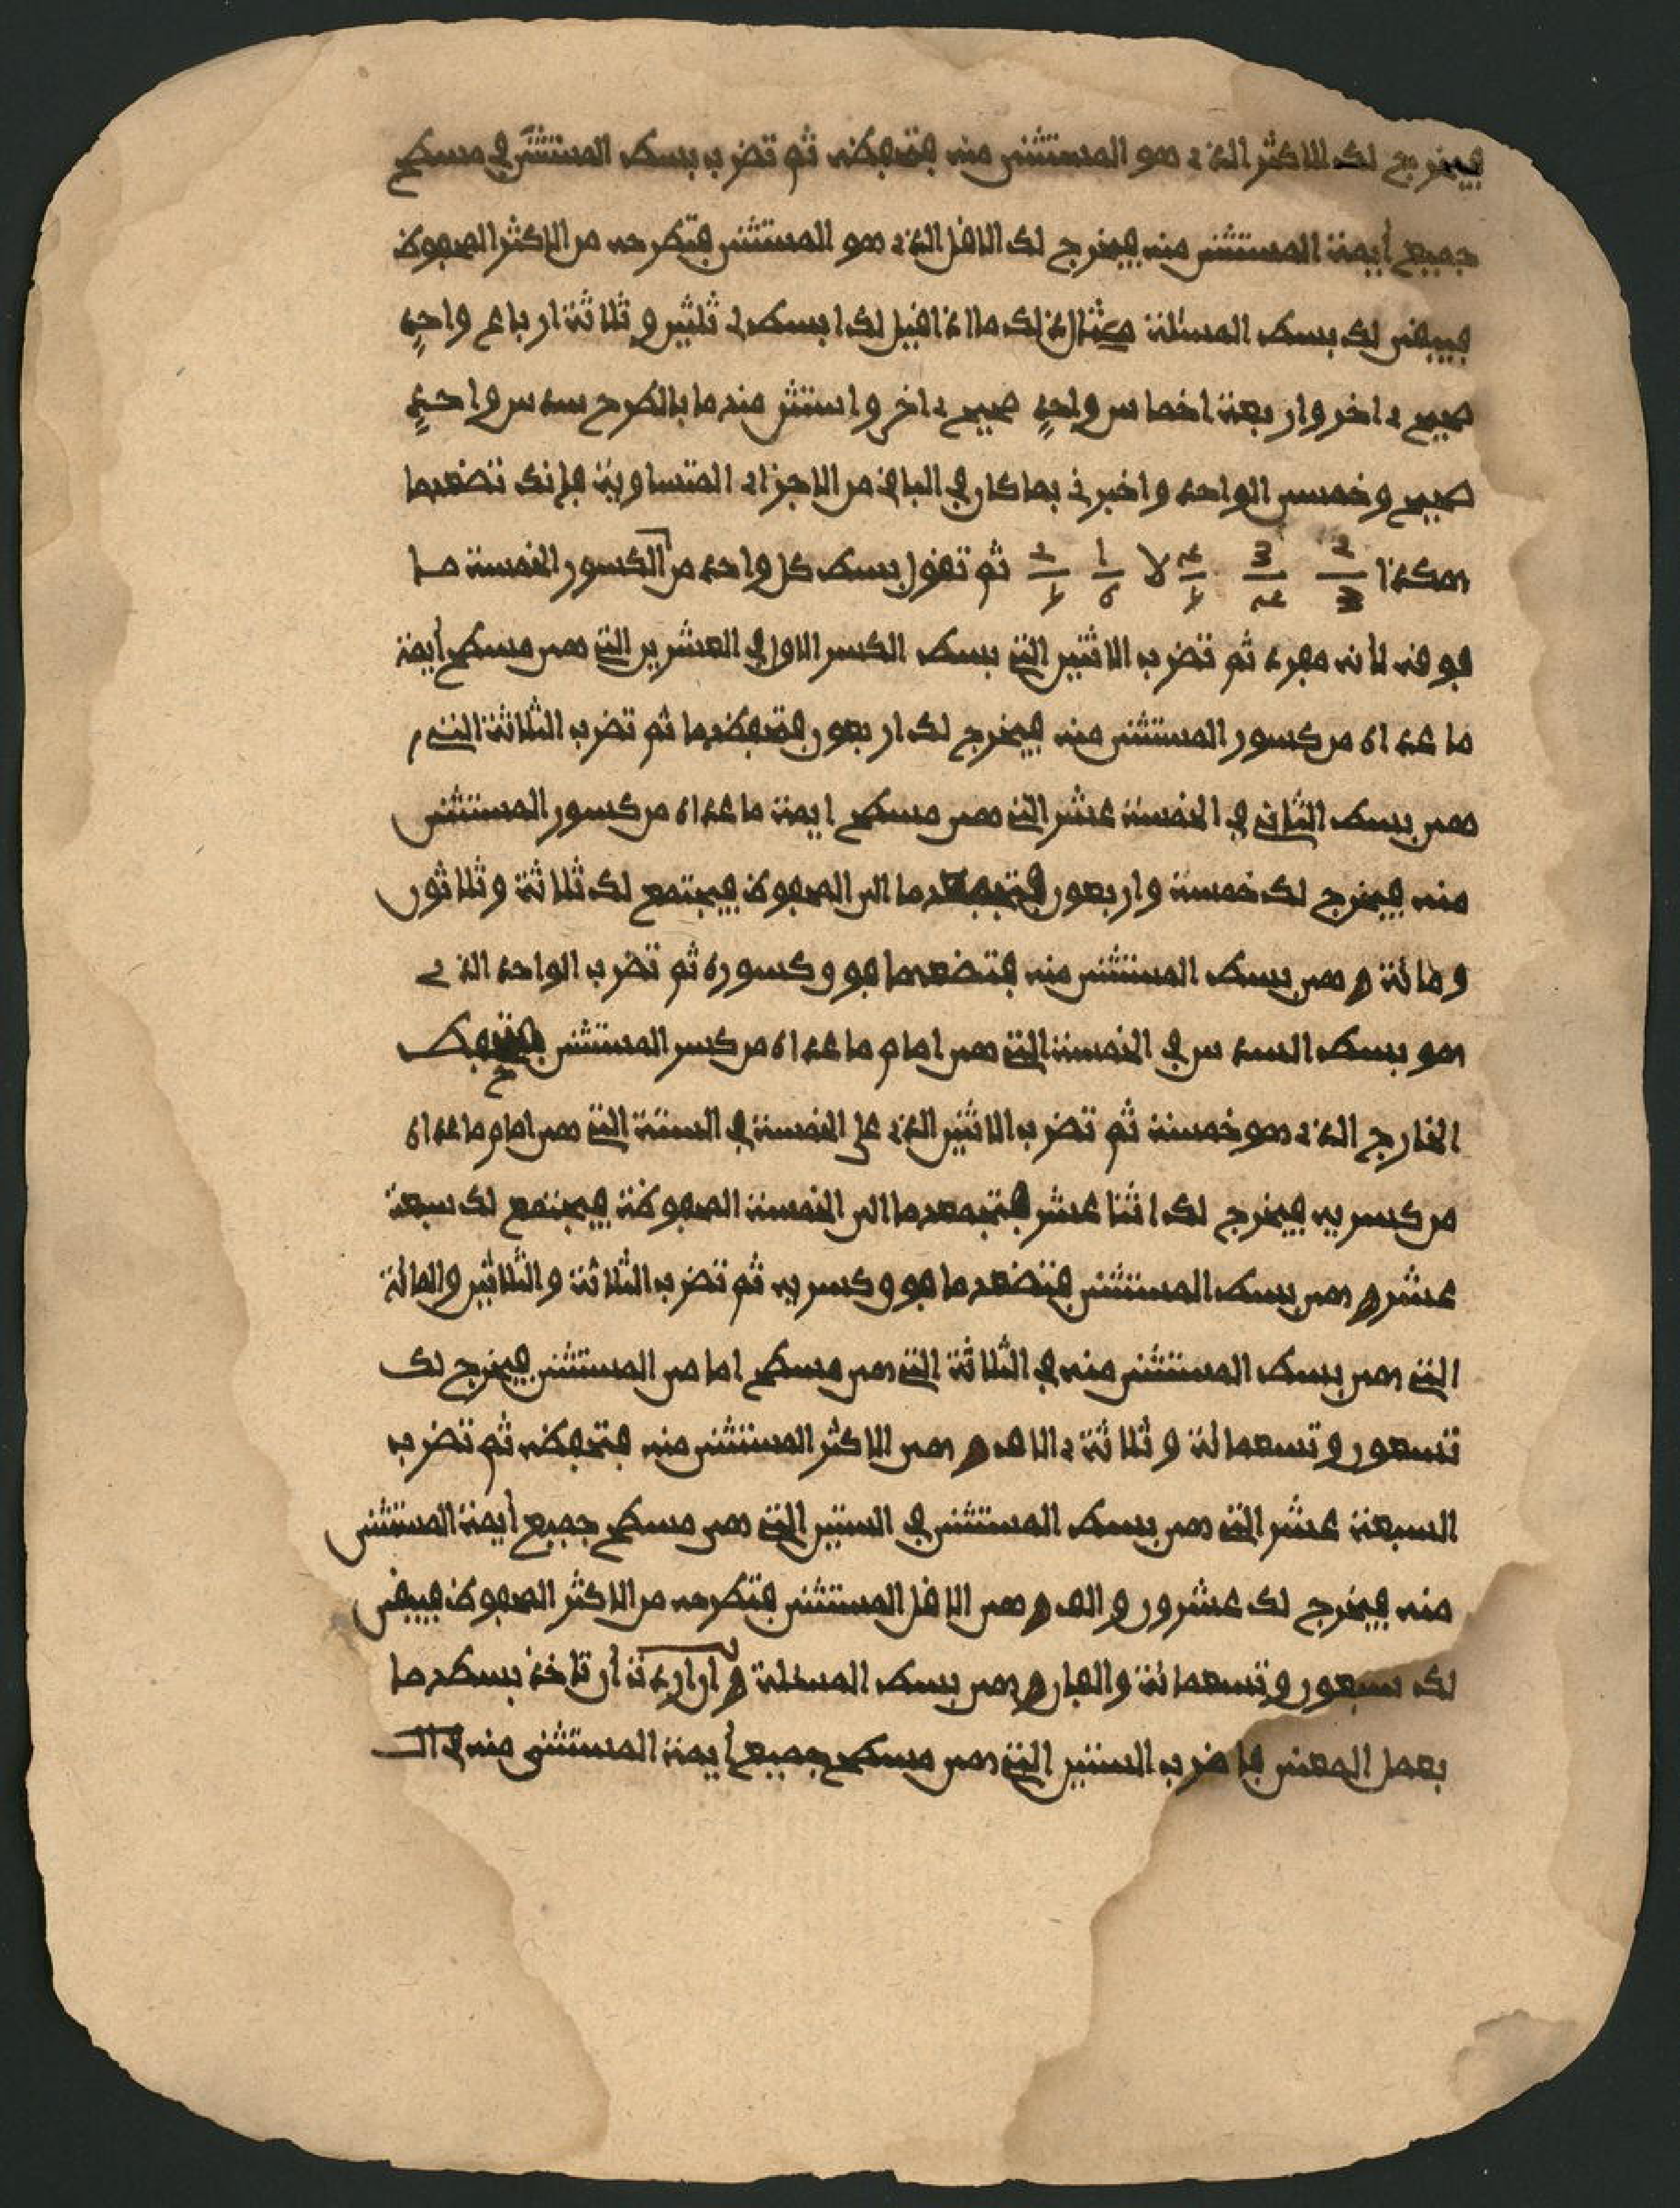 فيخرج لك الاكثر الذي هو المستثنى منه فتحفظه ثم تضرب بسط المستثنى في مسطح
جميع أيمة المستثنى منه فيخرج لك الاقل الذي هو المستثنى فتطرحه من الاكثر المحفوظ
فيبقى لك بسط المسئلة مثال ذلك ما اذا قيل لك ابسط لي ثلثين و ثلاثة ارباع واحدٍ
صحيح ءاخر واربعة اخماس واحدٍ صحيح ءاخر واستثن منها بالطرح سدس واحدٍ
صحيح وخمسي الواحد واخبرني بما كان في الباقي من الاجزاء المتساوية فإنك تضعها
هكذا 2/3 3/4 4/5 لا 1/6 2/5 ثم تقول بسط كل واحد من الكسور الخمسة ما
فوقه لأنه مفرد ثم تضرب الاثنين التي بسط الكسر الاول في العشرين التي هي مسطح أيمة
ما عداه من كسور المستثنى منه فيخرج لك اربعون فتحفظها ثم تضرب الثلاثة التي
هي بسط الثاني في الخمسة عشر التي هي مسطح ايمة ما عداه من كسور المستثنى
منه فيخرج لك خمسة واربعون فتجمعها الى المحفوظ فيجتمع لك ثلاثة وثلاثون
ومائة وهي بسط المستثنى منه فتضعها فوق كسوره ثم تضرب الواحد الذي
هو بسط السدس في الخمسة التي هي امام ما عداه من كسر المستثنى فتحفظ
الخارج الذي هو خمسة ثم تضرب الاثنين الذي على الخمسة في الستة التي هي امام ما عداه
من كسريه فيخرج لك اثنا عشر فتجمعها الى الخمسة المحفوظة فيجتمع لك سبعة
عشر وهي بسط المستثنى فتضعها فوق كسريه ثم تضرب الثلاثة والثلاثين والمائة
التي هي بسط المستثنى منه في الثلاثة التي هي مسطح امامي المستثنى فيخرج لك
تسعون وتسعمائة وثلاثة ءالاف وهي الاكثر المستثنى منه فتحفظه ثم تضرب
السبعة عشر التي هي بسط المستثنى في الستين التي هي مسطح جميع أيمة المستثنى
منه فيخرج لك عشرون والف وهي الاقل المستثنى فتطرحه من الاكثر المحفوظ فيبقى
لك سبعون وتسعمائة والفان وهي بسط المسئلة وان اردت أن تاخذ بسطها
بعمل المعنى فاضرب الستين التي هي مسطح جميع أيمة المستثنى منه في